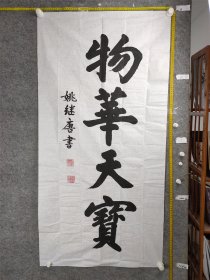 物華天寶
姚继唐書